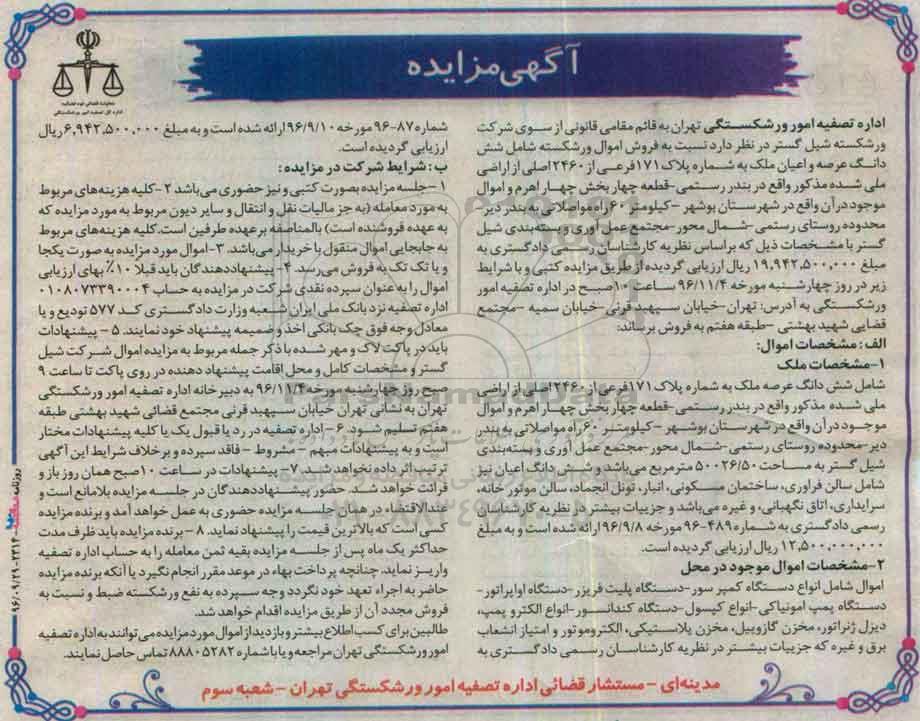 آگهی مزایده
معاونت قضائی قوه قضائیه
اداره کل تصفیه امور ورشکستگی
اداره تصفیه امور ورشکستگی تهران به قائم مقامی قانونی از سوی شرکت
ورشکسته شیل گستر در نظر دارد نسبت به فروش اموال ورشکسته شامل شش
دانگ عرصه و اعیان ملک به شماره پلاک ۱۷۱ فرعی از ۲۴۶۰ اصلی از اراضی
ملی شده مذکور واقع در بندر رستمی-قطعه چهار بخش چهار اهرم و اموال
موجود در آن واقع در شهرستان بوشهر -کیلومتر ۶۰ راه مواصلاتی به بندر دیر-
محدوده روستای رستمی -شمال محور-مجتمع عمل آوری و بسته‌بندی شیل
گستر با مشخصات ذیل که براساس نظریه کارشناسان رسمی دادگستری به
مبلغ ۱۹,۹۴۲,۵۰۰,۰۰۰ ریال ارزیابی گردیده از طریق مزایده کتبی و با شرایط
زیر در روز چهارشنبه مورخه ۹۶/۱۱/۴ ساعت ۱۰صبح در اداره تصفیه امور
ورشکستگی به آدرس: تهران-خیابان سپهبد قرنی -خیابان سمیه -مجتمع
قضایی شهید بهشتی -طبقه هفتم به فروش برساند:
الف: مشخصات اموال:
۱-مشخصات ملک
شامل شش دانگ عرصه ملک به شماره پلاک ۱۷۱ فرعی از ۲۴۶۰ اصلی از اراضی
ملی شده مذکور واقع در بندر رستمی-قطعه چهار بخش چهار اهرم و اموال
موجود در آن واقع در شهرستان بوشهر -کیلومتر ۶۰ راه مواصلاتی به بندر
دیر-محدوده روستای رستمی-شمال محور-مجتمع عمل آوری و بسته‌بندی
شیل گستر به مساحت ۵۰۰۲۶/۵۰ مترمربع می‌باشد و شش دانگ اعیان نیز
شامل سالن فرآوری، ساختمان مسکونی، انبار، تونل انجماد، سالن موتور خانه،
سرایداری، اتاق نگهبانی، و غیره می‌باشد و جزییات بیشتر در نظریه کارشناسان
رسمی دادگستری به شماره ۴۸۹-۹۶ مورخه ۹۶/۹/۸ ارائه شده است و به مبلغ
۱۲,۵۰۰,۰۰۰,۰۰۰ ریال ارزیابی گردیده است.
۲-مشخصات اموال موجود در محل
اموال شامل انواع دستگاه کمپرسور-دستگاه پلیت فریزر-دستگاه اواپراتور-
دستگاه پمپ آمونیاکی-انواع کپسول-دستگاه کندانسور-انواع الکترو پمپ،
دیزل ژنراتور، مخزن گازوییل، مخزن پلاستیکی، الکتروموتور و امتیاز انشعاب
برق و غیره که جزییات بیشتر در نظریه کارشناسان رسمی دادگستری به
شماره ۸۷-۹۶ مورخه ۹۶/۹/۱۰ ارائه شده است و به مبلغ ۶,۹۴۲,۵۰۰,۰۰۰ ریال
ارزیابی گردیده است.
ب: شرایط شرکت در مزایده:
۱-جلسه مزایده بصورت کتبی و نیز حضوری می‌باشد ۲-کلیه هزینه‌های مربوط
به مورد معامله (به جز مالیات نقل و انتقال و سایر دیون مربوط به مورد مزایده که
به عهده فروشنده است) بالمناصفه برعهده طرفین است.کلیه هزینه‌های مربوط
به جابجایی اموال منقول با خریدار می‌باشد. ۳-اموال مورد مزایده به صورت یکجا
و یا تک تک به فروش می‌رسد. ۴-پیشنهاددهندگان باید قبلا ۱۰٪ بهای ارزیابی
اموال را به عنوان سپرده نقدی شرکت در مزایده به حساب ۰۱۰۸۰۷۳۳۹۰۰۰۴
اداره تصفیه نزد بانک ملی ایران شعبه وزارت دادگستری کد ۵۷۷ تودیع و یا
معادل وجه فوق چک بانکی اخذ و ضمیمه پیشنهاد خود نمایند. ۵- پیشنهادات
باید در پاکت لاک و مهر شده با ذکر جمله مربوط به مزایده اموال شرکت شیل
گستر و مشخصات کامل و محل اقامت پیشنهاد دهنده در روی پاکت تا ساعت ۹
صبح روز چهارشنبه مورخه ۹۶/۱۱/۴ به دبیرخانه اداره تصفیه امور ورشکستگی
تهران به نشانی تهران خیابان سپهبد قرنی مجتمع قضائی شهید بهشتی طبقه
هفتم تسلیم شود. ۶-اداره تصفیه در رد یا قبول یک یا کلیه پیشنهادات مختار
است و به پیشنهادات مبهم - مشروط - فاقد سپرده و برخلاف شرایط این آگهی
ترتیب اثر داده نخواهد شد. ۷-پیشنهادات در ساعت ۱۰ صبح همان روز باز و
قرائت خواهد شد. حضور پیشنهاددهندگان در جلسه مزایده بلامانع است و
عندالاقتضاء در همان جلسه مزایده حضوری به عمل خواهد آمد و برنده مزایده
کسی است که بالاترین قیمت را پیشنهاد نماید. ۸-برنده مزایده باید ظرف مدت
حداکثر یک ماه پس از جلسه مزایده بقیه ثمن معامله را به حساب اداره تصفیه
واریز نماید. چنانچه پرداخت بهاء در موعد مقرر انجام نگیرد یا آنکه برنده مزایده
حاضر به اجراء تعهد خود نگردد وجه سپرده به نفع ورشکسته ضبط و نسبت به
فروش مجدد آن از طریق مزایده اقدام خواهد شد.
طالبین برای کسب اطلاع بیشتر و بازدید از اموال مورد مزایده می‌توانند به اداره تصفیه
امور ورشکستگی تهران مراجعه و یا با شماره ۸۸۸۰۵۲۸۲ تماس حاصل نمایند.
مدینه‌ای - مستشار قضائی اداره تصفیه امور ورشکستگی تهران - شعبه سوم
ParsNamadData